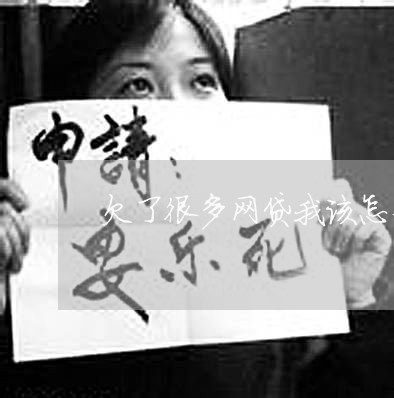 申請：
欠了很多网贷我该怎
要乐死